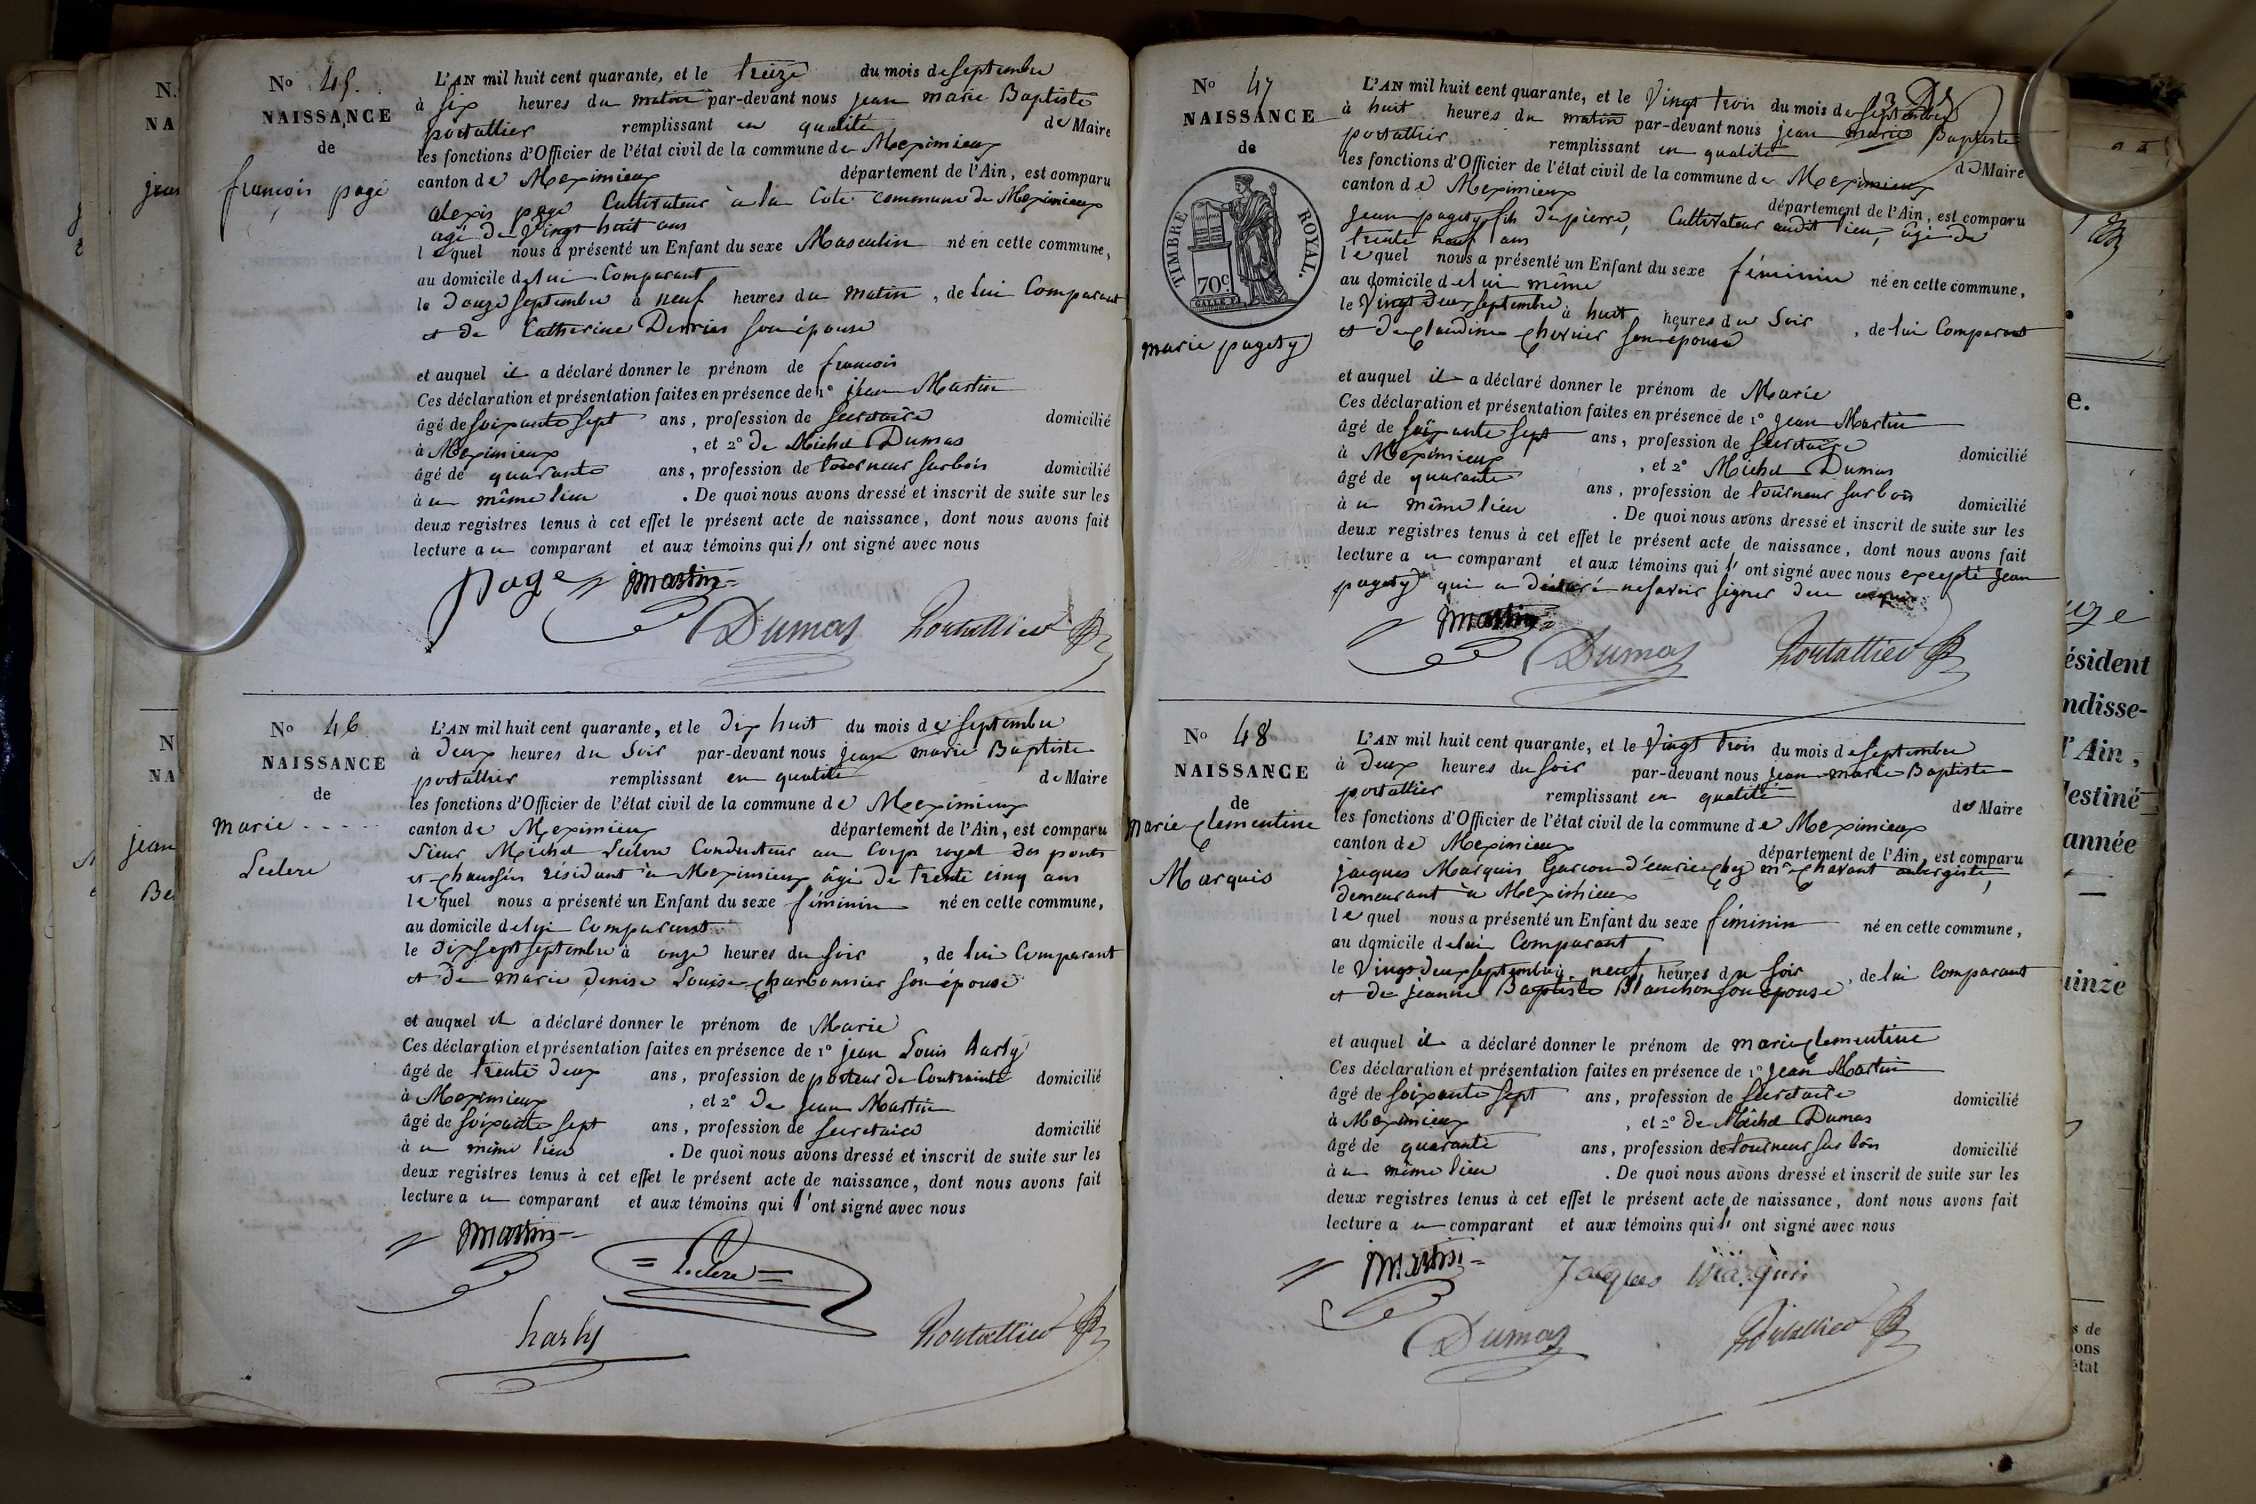 N° 45.
NAISSANCE
de
françois pagé
L'AN mil huit cent quarante, et le treize du mois de septembre
à six heures du matin par-devant nous jean marie Baptiste
portallier remplissant en qualité de Maire
les fonctions d'Officier de l'état civil de la commune de Meximieux
canton de Meximieux département de l'Ain, est comparu
alexis page Cultivateur à la Cote commune de Meximieux
agé de Vingt huit ans
lequel nous a présenté un Enfant du sexe Masculin né en cette commune,
au domicile de lui Comparant
le Douze septembre à neuf heures du matin, de lui Comparant
et de Catherine son épouse
et auquel il a déclaré donner le prénom de françois
Ces déclaration et présentation faites en présence de 1° jean Martin
âgé de soixante sept ans, profession de secretaire domicilié
à Meximieux, et 2° de Michel Dumas
âgé de quarante ans, profession de tourneur sur bois domicilié
à u même lieu. De quoi nous avons dressé et inscrit de suite sur les
deux registres tenus à cet effet le présent acte de naissance, dont nous avons fait
lecture a u comparant et aux témoins qui l'ont signé avec nous
page martin
Dumas Portallier
N° 46
NAISSANCE
de
marie
Leclere
L'AN mil huit cent quarante, et le dix huit du mois de septembre
à Deux heures du soir par-devant nous jean marie Baptiste
portallier remplissant en qualité de Maire
les fonctions d'Officier de l'état civil de la commune de Meximieux
canton de Meximieux département de l'Ain, est comparu
sieur Michel Leclere Conducteur au Corps royal des ponts
et chaussées résidant à Meximieux âgé de trente cinq ans
lequel nous a présenté un Enfant du sexe féminin né en cette commune,
au domicile de lui Comparant
le dix sept septembre à onze heures du soir, de lui Comparant
et de marie denise Louise charbonnier son épouse
et auquel il a déclaré donner le prénom de Marie
Ces déclaration et présentation faites en présence de 1° jean Louis harly
âgé de trente deux ans, profession de porteur de Contrainte domicilié
à Meximieux, et 2° de jean Martin
âgé de soixante sept ans, profession de secretaire domicilié
à u même lieu. De quoi nous avons dressé et inscrit de suite sur les
deux registres tenus à cet effet le présent acte de naissance, dont nous avons fait
lecture a u comparant et aux témoins qui l'ont signé avec nous
martin
Leclere
harly Portallier
N° 47
NAISSANCE
de
TIMBRE ROYAL.
70c.
marie pagety
L'AN mil huit cent quarante, et le Vingt trois du mois de septembre
à huit heures du matin par-devant nous jean marie Baptiste
portallier remplissant en qualité de Maire
les fonctions d'Officier de l'état civil de la commune de Meximieux
canton de Meximieux département de l'Ain, est comparu
jean pagety fils de pierre, Cultivateur audit lieu, âgé de
trente neuf ans
lequel nous a présenté un Enfant du sexe féminin né en cette commune,
au domicile de lui même
le Vingt deux septembre à huit heures du soir, de lui Comparant
et de Claudine son épouse
et auquel il a déclaré donner le prénom de Marie
Ces déclaration et présentation faites en présence de 1° jean Martin
âgé de soixante sept ans, profession de secretaire domicilié
à Meximieux, et 2° Michel Dumas
âgé de quarante ans, profession de tourneur sur bois domicilié
à u même lieu. De quoi nous avons dressé et inscrit de suite sur les
deux registres tenus à cet effet le présent acte de naissance, dont nous avons fait
lecture a u comparant et aux témoins qui l'ont signé avec nous excepté jean
pagety qui a déclaré ne savoir signer de ce requis
martin
Dumas Portallier
N° 48
NAISSANCE
de
marie clementine
Marquis
L'AN mil huit cent quarante, et le Vingt trois du mois de septembre
à Deux heures du soir par-devant nous jean marie Baptiste
portallier remplissant en qualité de Maire
les fonctions d'Officier de l'état civil de la commune de Meximieux
canton de Meximieux département de l'Ain, est comparu
jacques Marquis Garcon d'écurie chez mr Chavant aubergiste,
demeurant à Meximieux
lequel nous a présenté un Enfant du sexe féminin né en cette commune,
au domicile de lui Comparant
le Vingt deux septembre à neuf heures du soir, de lui Comparant
et de jeanne Baptiste Blanchon son épouse
et auquel il a déclaré donner le prénom de marie clementine
Ces déclaration et présentation faites en présence de 1° jean Martin
âgé de soixante sept ans, profession de secretaire domicilié
à Meximieux, et 2° de Michel Dumas
âgé de quarante ans, profession de tourneur sur bois domicilié
à u même lieu. De quoi nous avons dressé et inscrit de suite sur les
deux registres tenus à cet effet le présent acte de naissance, dont nous avons fait
lecture a u comparant et aux témoins qui l'ont signé avec nous
martin Jacques Marquis
Dumas Portallier